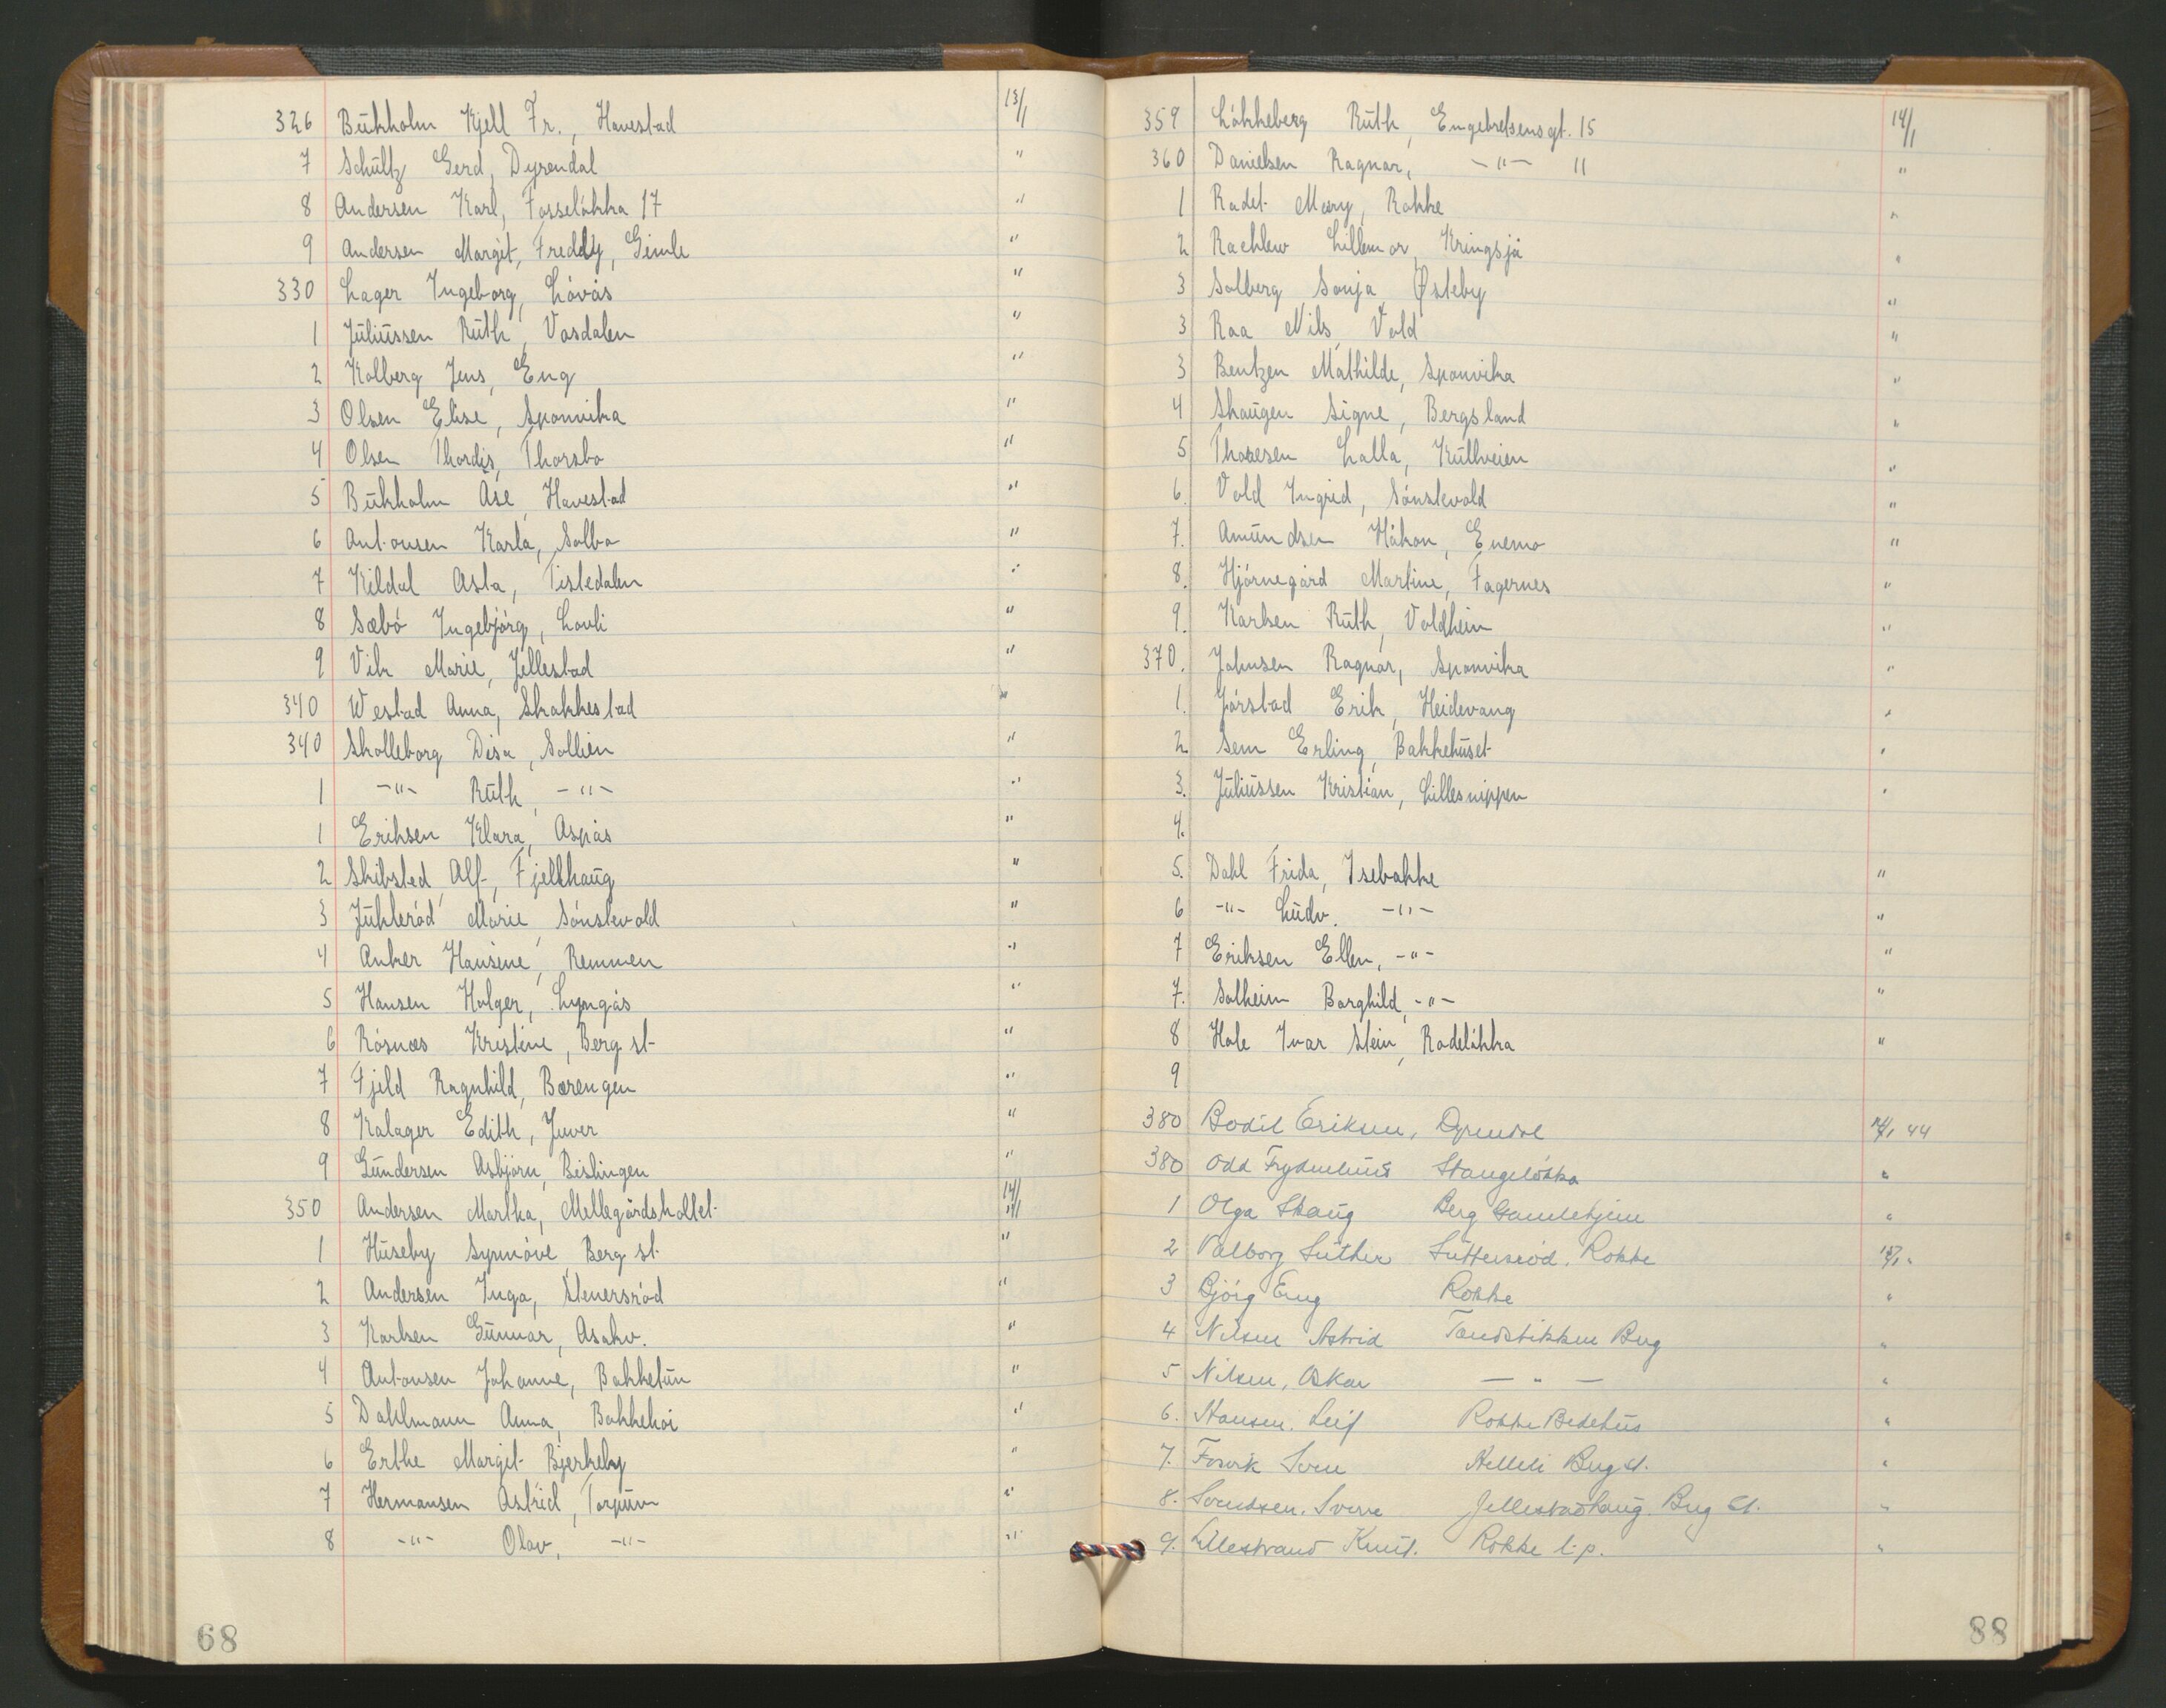 326 Bukholm Kjell Fr., Havestad 13/1
7 Schultz Gerd, Dyrendal "
8 Andersen Karl, Fosseløkka 17 "
9 Andersen Margit, Freddy, Gimle "
330 Lager Ingeborg, Løvås "
1 Juliussen Ruth, Vasdalen "
2 Kolberg Jens, Eng "
3 Olsen Elise, Sponvika "
4 Olsen Thordis, Thorsbo "
5 Bukholm Åse, Havestad "
6 Antonsen Karla, Solbo "
7 Kildal Asta, Tistedalen "
8 Sæbø Ingebjørg, Lovli "
9 Vik Marie, Jellestad "
340 Westad Anna, Skakkestad "
340 Skolleborg Disa, Sollien "
1 -"- Ruth, -"- "
1 Eriksen Klara, Aspås "
2 Skibsted Alf, Fjellhaug "
3 Juhlerød Marie, Sønstevold "
4 Anker Hansine, Remmen "
5 Hansen Holger, Lyngås "
6 Røsnæs Kristine, Berg st. "
7 Fjeld Ragnhild, Bærengen "
8 Kalager Edith, Juver "
9 Gundersen Asbjørn, Beislingen "
350 Andersen Martha, Mellegårdshollet 14/1
1 Huseby Synnøve, Berg st. "
2 Andersen Inga, Stenersrød "
3 Karlsen Gunnar, Asakv. "
4 Antonsen Johanne, Bakketun "
5 Dahlmann Anna, Bakkehøi "
6 Erthe Margit Bjerkeby "
7 Hermansen Astrid, Torpum "
8 -"- Olav, -"- "
68
359 Løkkeberg Ruth, Engebretsensgt. 15 14/1
360 Danielsen Ragnar, -"- " "
1 Radet Mary, Rokke "
2 Rachlew Lillemor, Kringsjå "
3 Solberg Sonja, Østeby "
3 Raa Nils, Vold "
3 Bentzen Mathilde, Sponvika "
4 Skaugen Signe, Bergsland "
5 Thoresen Lalla, Kullveien "
6. Vold Ingrid, Sønstevold "
7. Amundsen Håkon, Enemo "
8. Hjørnegård Martine, Fagernes "
9. Karlsen Ruth, Voldheim "
370. Johnsen Ragnar, Sponvika "
1. Jørstad Erik, Heidevang "
2. Sem Erling, Bakkehuset "
3. Juliussen Kristian, Lillesnippen "
4.
5. Dahl Frida, Isebakke "
6 -"- Ludv. -"- "
7 Eriksen Ellen, -"- "
7. Solheim Borghild, -"- "
8 Hole Ivar Stein, Rødeløkka "
9
380 Bodil Eriksen, Dyrendal 14/1 44
380 Odd Frydenlund Stangeløkka "
1 Olga Skaug Berg Gamlehjem "
2 Valborg Luther Luttersrød, Rokke 15/1 "
3 Bjørg Eng Rokke "
4 Nilsen Astrid Tændstikken Berg "
5 Nilsen, Oskar — " — "
6. Hansen, Leif Rokke Bedehus "
7. Fosvik Sven Helleli Berg st. "
8. Svendsen, Sverre Jellestadhaug, Berg st. "
9. Lillestrand Knut. Rokke l.p. "
88